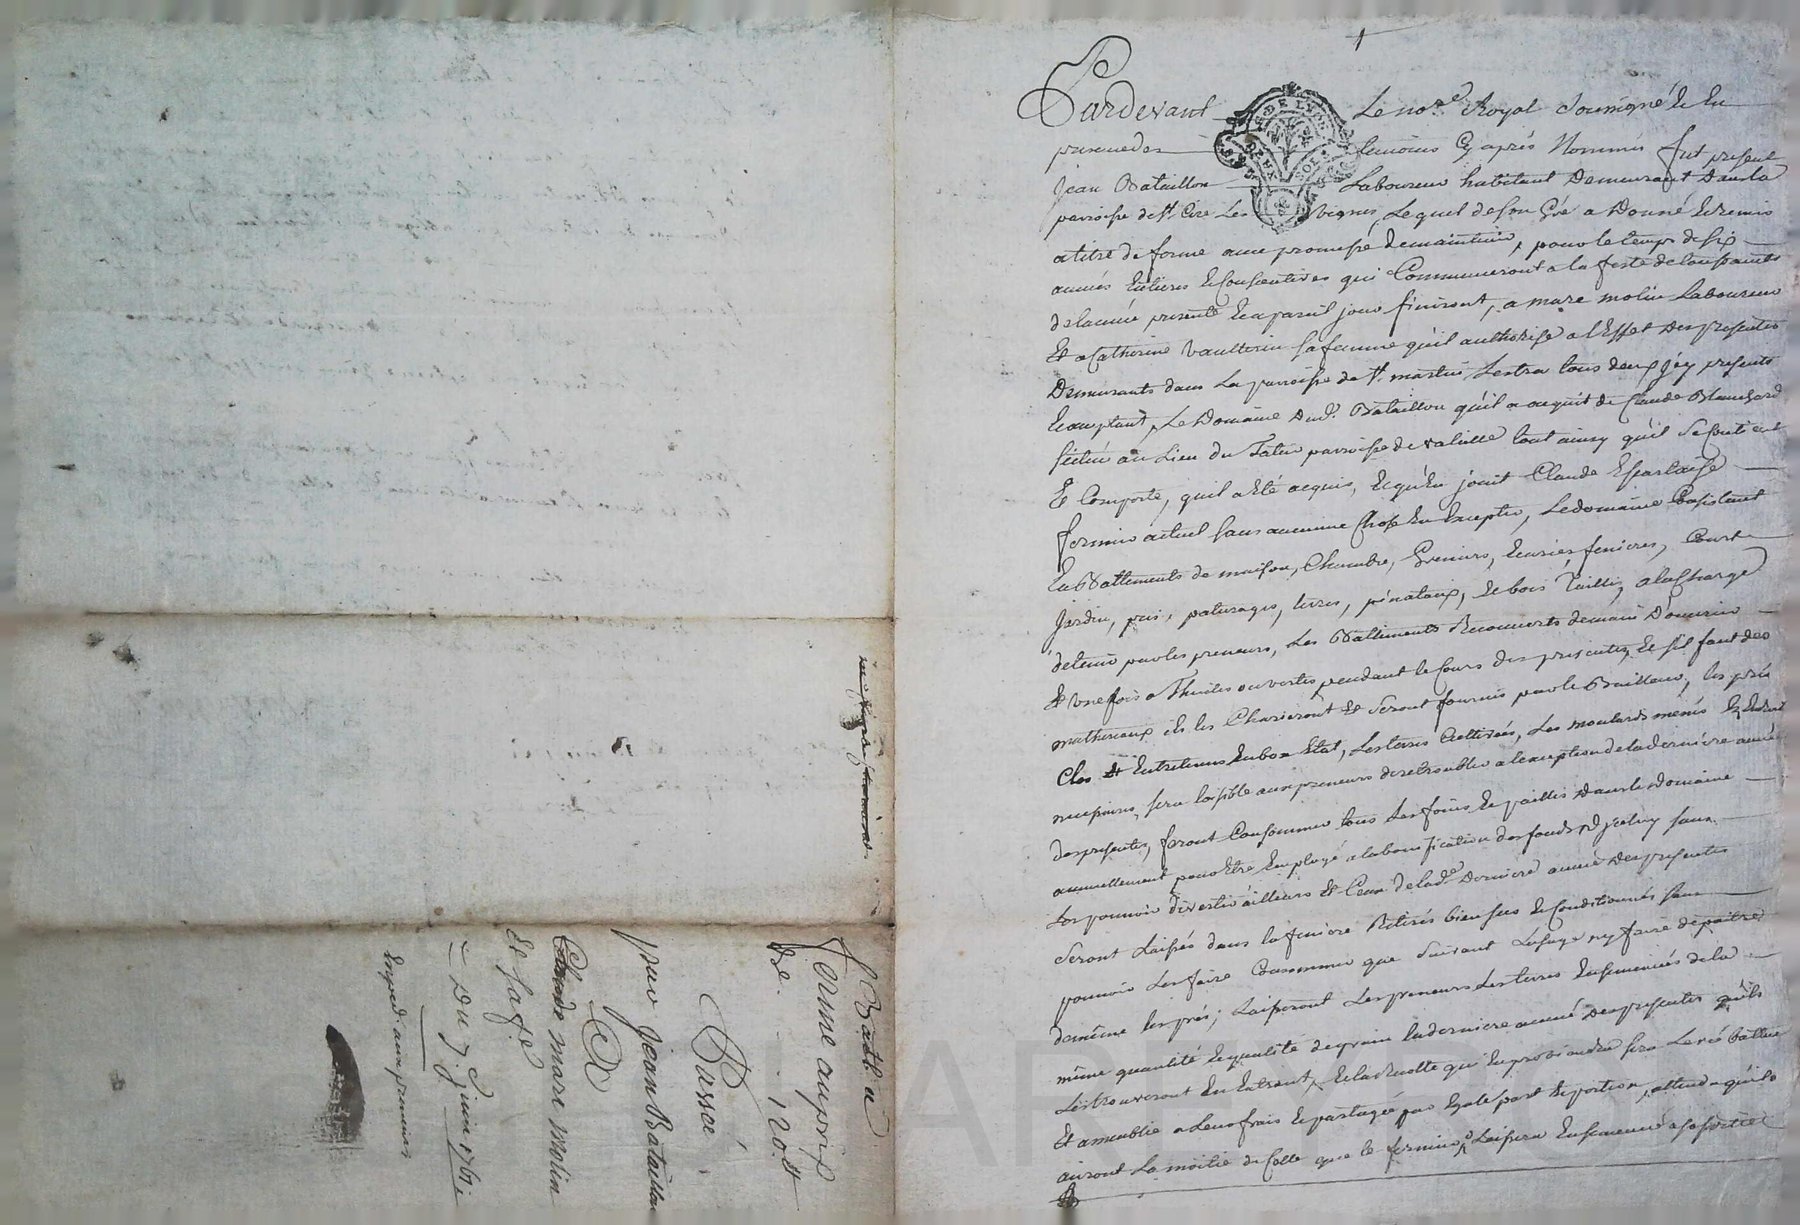 Pardevant Le no.re Royal Soussigné Et En
presence des temoins Cy aprés Nommés fut present
Jean Bataillon Laboureur habitant Demeurant Dans la
parroisse de St. Cire Les vignes, Lequel de son Gré a Donné Et remis
a titre de ferme avec promesse de maintenir, pour le temps de six
années Entieres Et Consecutives qui Commenceront a la feste de toussaints
de lannée presente Et a pareil jour finiront, a marc molin Laboureur
Et a Catherine Vaulterin sa femme qu'il authorise a l'Effet Des presentes
Demeurants dans La parroisse de St. martin Lestra tous deux Jcy presents
Et acceptant, Le Domaine Dud. Bataillon qu'il a acquit de Claude Blanchard
scitué au Lieu du Tatin parroisse de valeille tout ainsy qu'il Se Contient
Et Comporte, quil a Eté acquis, Et qu'En jouit Claude Esparlaise
fermier actuel sans aucune Chose En Excepter, Le domaine Consistant
En Battiments de maison, Chambre, Greniers, Ecuries, fenieres, Court
Jardin, prés, paturages, terres, pinataux, Et bois Taillis, a la Charge
de tenir par les preneurs, Les Battiments Recouverts de main D'ouvrier
Et Une fois a Thuiles ouvertes pendant le Cours des presentes, Et s'il faut des
matheriaux ils les Charieront Et Seront fournis par le Bailleur, les prés
Clos Et Entretenus En bon Etat, Les terres Cultivées,
sera loisible aux preneurs de retroubler a l'exception de la derniere année
des presentes, feront Consommer tous Les foins Et pailles Dans le Domaine
annuellement pour Etre Employé a la bonification des fonds D'jceluy sans
Les pouvoir divertir ailleurs Et Ceux de lad.e Derniere année Des presentes
Seront Laissés dans la feniere Retirés bien secs Et Conditionnés sans
pouvoir Les faire Consommer que Suivant Lusage ny faire dépaitre
de même les prés; Laisseront Les preneurs Les terres Ensemencées de la
même quantité Et qualité de grain la derniere année Des presentes qu'ils
Les trouveront En Entrant, Et la Recolte qui En proviendra sera Levée Battue
Et ameublie a Leur frais Et partagée par Egale part Et portion, attendu qu'ils
auront La moitié de Celle que le fermier Laissera Ensemencé a sa sortie
Ferme au prix
de . . . 120 tt
Passée
par Jean Bataillon
A
Claude marc molin
Et sa fe
Du 7 Juin 1761
Exped. aux preneurs